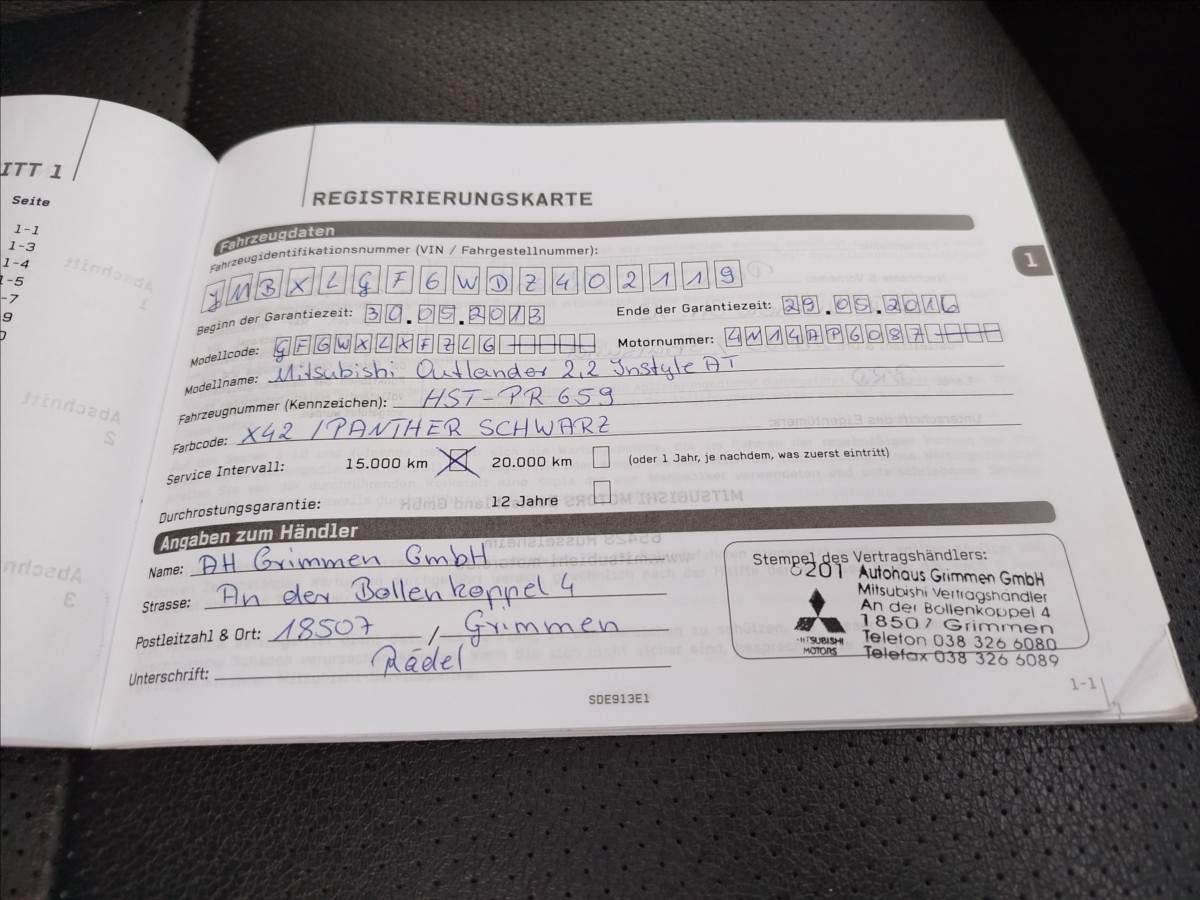 ITT 1
Seite
1-1
1-3
1-4
-5
-7
9
REGISTRIERUNGSKARTE
Fahrzeugdaten
Fahrzeugidentifikationsnummer (VIN / Fahrgestellnummer):
JMBXLGF6WDZ402119
Beginn der Garantiezeit: 30.05.2013 Ende der Garantiezeit: 29.05.2016
Modellcode: GFGWXLXFZL6 Motornummer: 4N14AP6087
Modellname: Mitsubishi Outlander 2,2 Instyle AT
Fahrzeugnummer (Kennzeichen): HST-PR 659
Farbcode: X42 / PANTHER SCHWARZ
Service Intervall: 15.000 km 20.000 km (oder 1 Jahr, je nachdem, was zuerst eintritt)
Durchrostungsgarantie: 12 Jahre
Angaben zum Händler
Name: AH Grimmen GmbH
Strasse: An der Bollenkoppel 4
Postleitzahl & Ort: 18507 / Grimmen
Unterschrift: Rädel
Stempel des Vertragshändlers:
6201 Autohaus Grimmen GmbH
Mitsubishi Vertragshändler
An der Bollenkoppel 4
18507 Grimmen
Telefon 038 326 6080
Telefax 038 326 6089
MITSUBISHI
MOTORS
SDE913E1
1-1
1